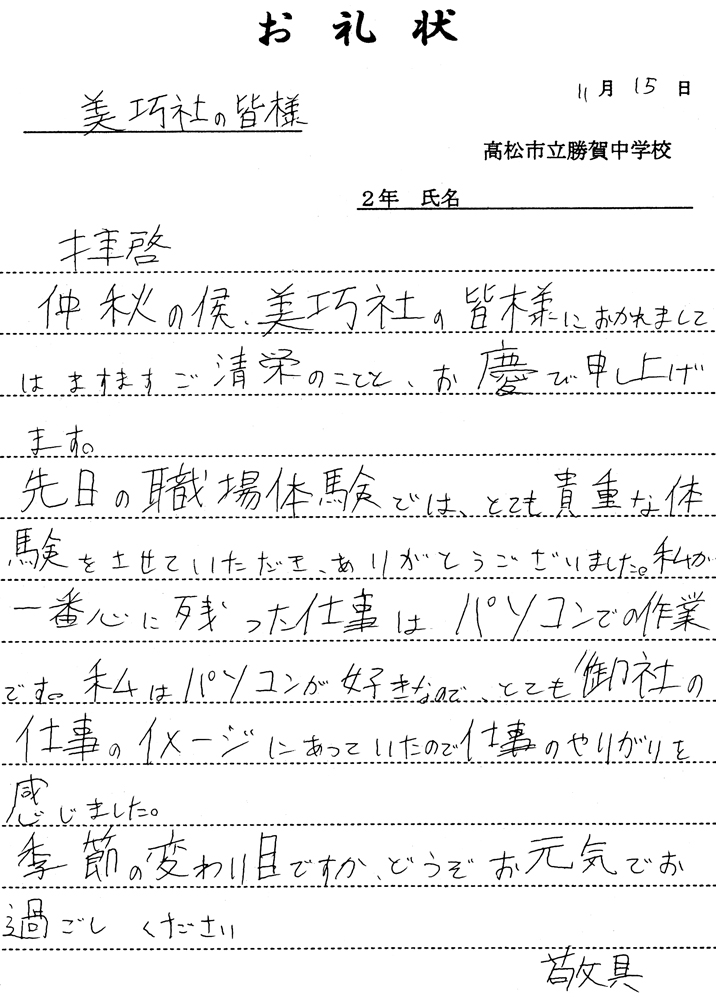 お礼状
11月15日
美巧社の皆様
高松市立勝賀中学校
2年 氏名
拝啓
仲秋の候、美巧社の皆様におかれまして
はますますご清栄のことと、お慶び申し上げ
ます。
先日の職場体験では、とても貴重な体
験をさせていただき、ありがとうございました。私が
一番心に残った仕事はパソコンでの作業
です。私はパソコンが好きなので、とても御社の
仕事のイメージにあっていたので仕事のやりがいを
感じました。
季節の変わり目ですが、どうぞお元気でお
過ごしください
敬具